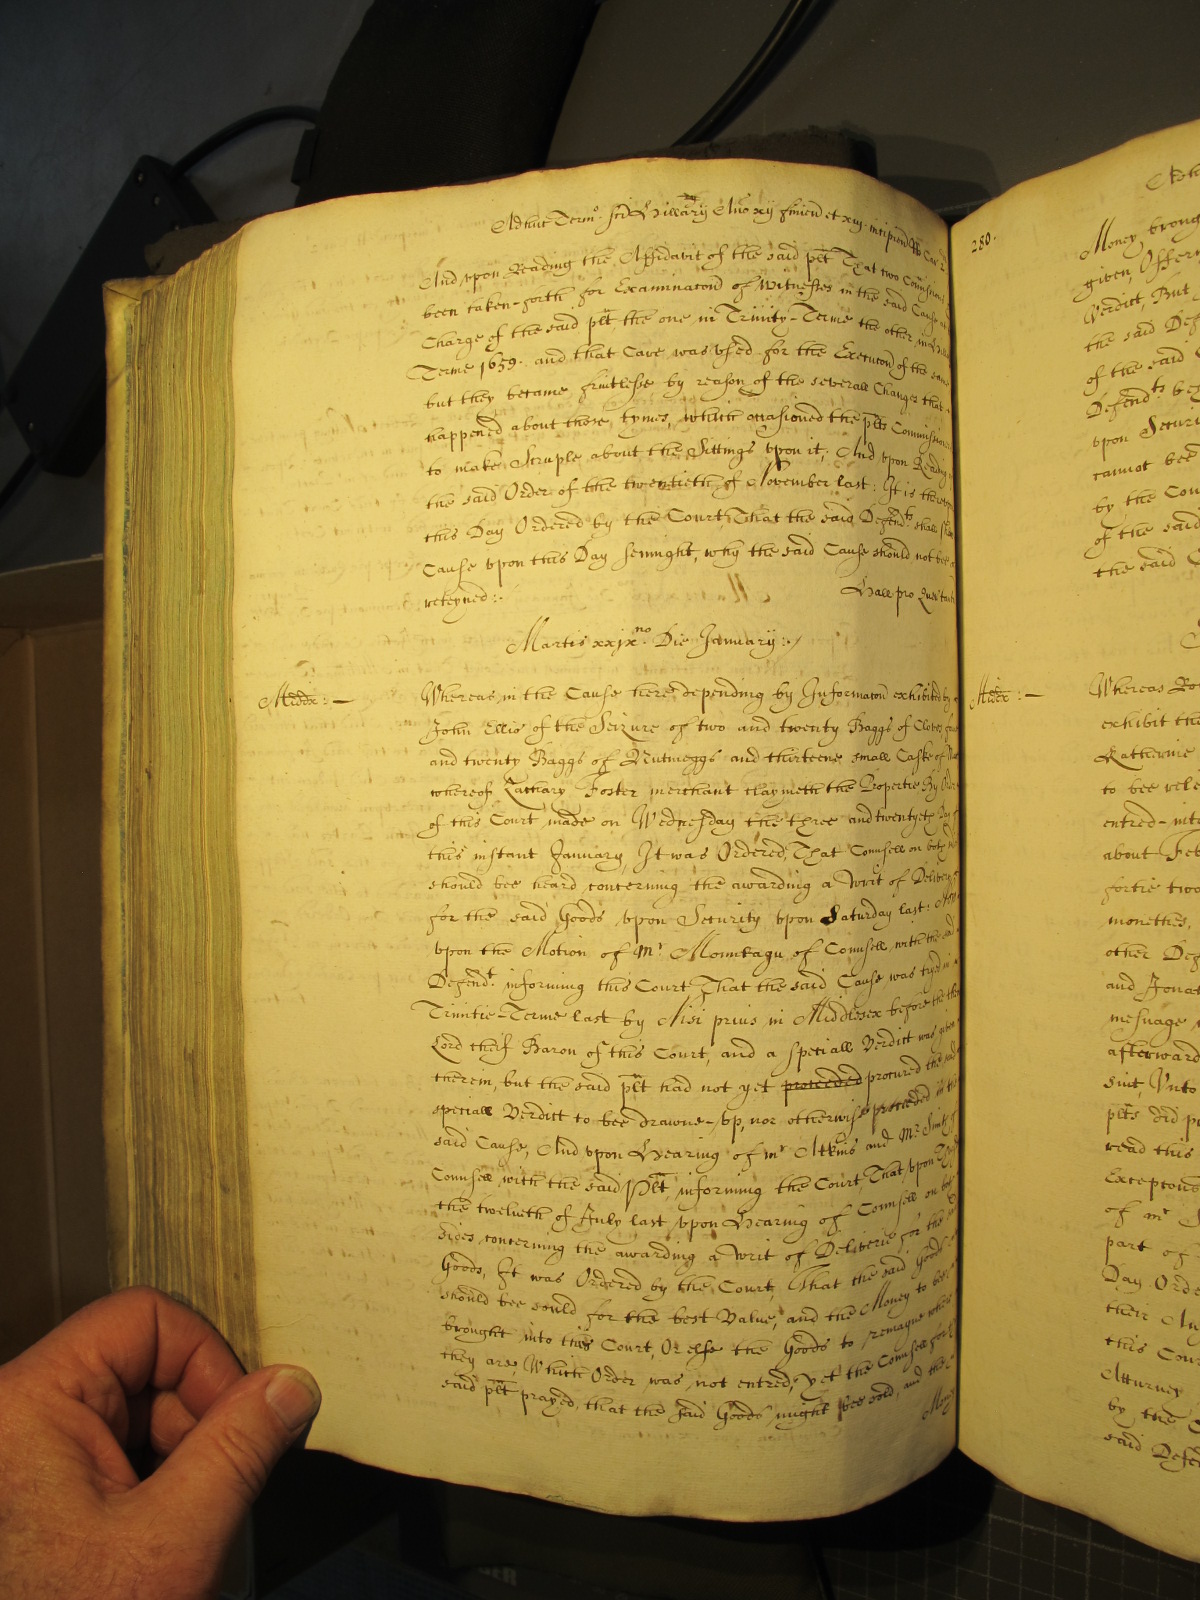 Adhuc Termo. Sci Hillary Anno xij finien et xiij. incipien Ro Car 2
And upon Reading the Affidavit of the said plt That two Comissions
been taken-forth for Examinacon of Witnesses in the said Cause at
Charge of the said plt the one in Trinity-Terme the other in
Terme 1659. and that Care was used for the Execucon of the same
but they became fruitlesse by reason of the severall Changes that
happened about those tymes, which occasioned the plts Comissioners
to make Scruple about the Sittings upon it; And upon Reading
the said Order of the twentieth of November last: It is thereupon
this Day Ordered by the Court, That the said Defendts. shall shew
Cause upon this Day sennight, why the said Cause should not bee
reteyned:.
Hall pro Quer
Martis xxixno. Die January:/
Middx:—
Whereas in the Cause here depending by Informacon exhibited by
John Ellis of the Seizure of two and twenty Baggs of Cloves
and twenty Baggs of Nutmeggs and thirteene small Caske of
whereof Zachary Foster merchant claymeth the Propertie By Order
of this Court made on Wednesday the three and twentyeth Day of
this instant January, It was Ordered, That Counsell on both
should bee heard concerning the awarding a Writ of Delivery
for the said Goods upon Security upon Saturday last: Now
upon the Motion of Mr. Mountagu of Counsell with the said
Defendt. informing this Court That the said Cause was tryed in
Trinitie-Terme last by Nisi prius in Middlesex before the then
Lord cheif Baron of this Court, and a speciall Verdict was given
therein, but the said plt had not yet proceeded procured the said
speciall Verdict to bee drawne-up, nor otherwise proceeded in the
said Cause, And upon Hearing of mr Atkins and Mr.
Counsell with the said Plt, informing the Court, That upon
the twelveth of July last upon Hearing of Counsell on both
sides concerning the awarding a Writ of Deliverie for the said
Goods, It was Ordered by the Court, That the said Goods
should bee sould for the best Value, and the Money to bee
brought into this Court, Or else the Goods to remayne where
they are, Which Order was not entred, yet the Counsell for the
said plt prayed, that the said Goods might bee sold, and the
Money
280.
Money brought
given, Offer
Verdict, But
the said Def
of the said
Defendts bee
upon Securi
cannot bee
by the Cou
of the said
the said
Midex:—
Whereas Ro
exhibit the
Katherine
to bee rele
entred-into
about Feb
fortie two
monethes,
other Def
and Jonat
mesuage
afterward
suit, Unto
plts did p
read this
Excepcons
of mr
part of
Day Orde
their An
this Cour
Atturney
by the C
said Defen